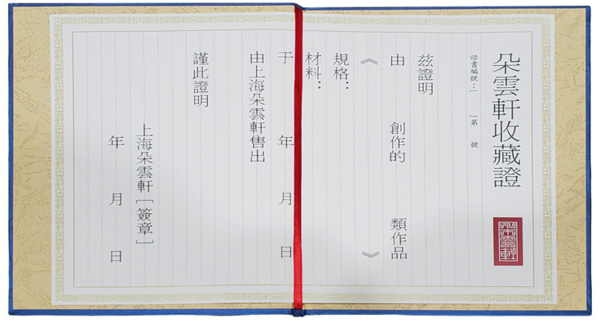 朵雲軒收藏證
證書編號：[ ]第 號
朵雲軒
茲證明
由 創作的 類作品
《 》
規格：
材料：
于 年 月 日
由上海朵雲軒售出
謹此證明
上海朵雲軒［簽章］
年 月 日